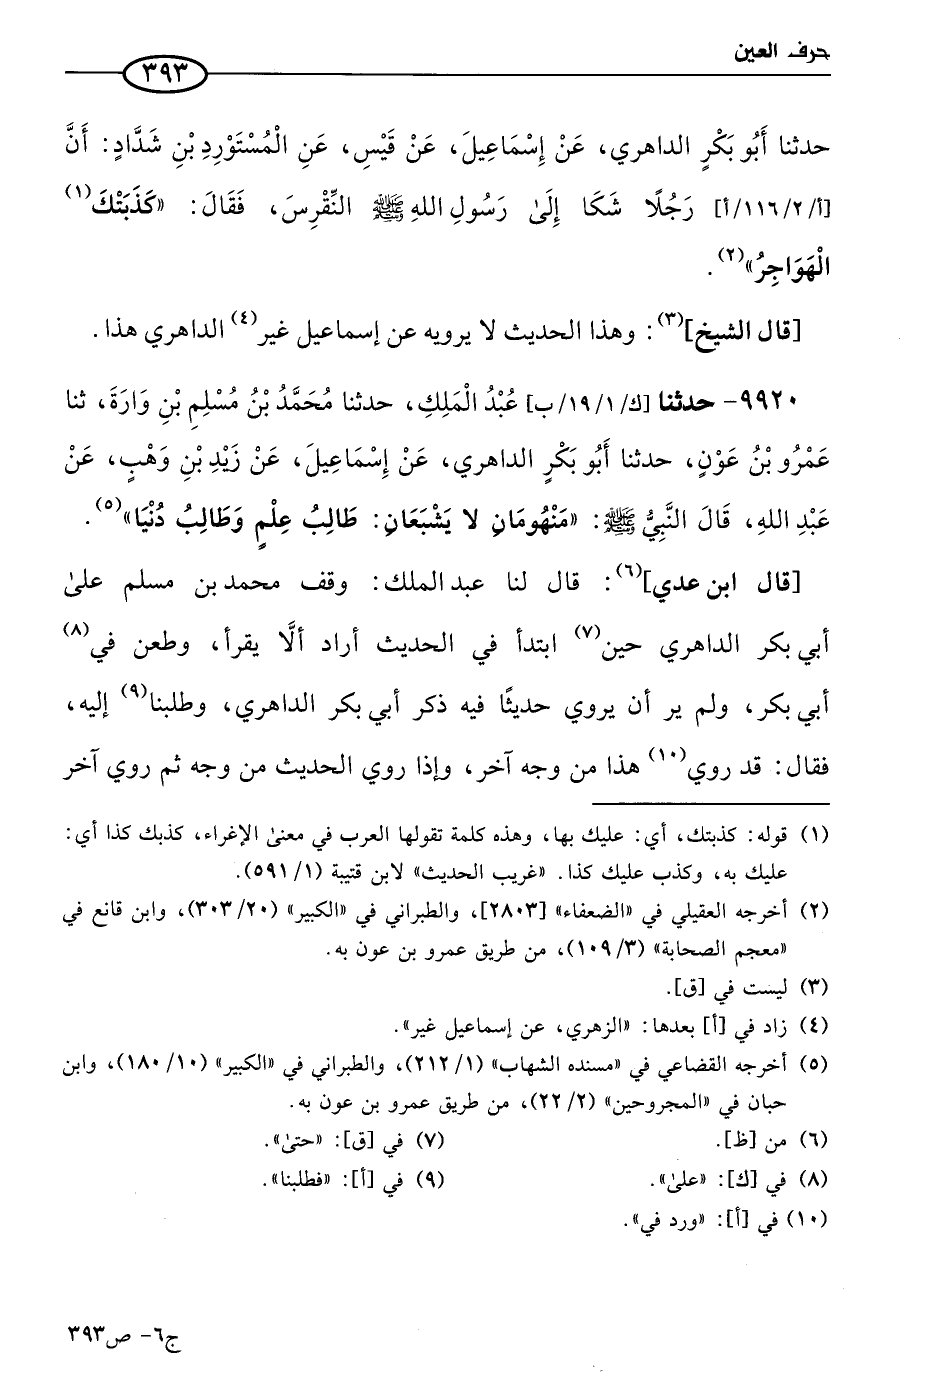 حرف العين
٣٩٣
حدثنا أَبُو بَكْرٍ الداهري، عَنْ إِسْمَاعِيلَ، عَنْ قَيْسٍ، عَنِ الْمُسْتَوْرِدِ بْنِ شَدَّادٍ: أَنَّ
[أ/٢/١١٦/أ] رَجُلًا شَكَا إِلَىٰ رَسُولِ اللهِ ﷺ النِّقْرِسَ، فَقَالَ: «كَذَبَتْكَ(١)
الْهَوَاجِرُ»(٢).
[قال الشيخ](٣): وهذا الحديث لا يرويه عن إسماعيل غير(٤) الداهري هذا.
٩٩٢٠- حدثنا [ك/١/١٩/ب] عُبْدُ الْمَلِكِ، حدثنا مُحَمَّدُ بْنُ مُسْلِمِ بْنِ وَارَةَ، ثنا
عَمْرُو بْنُ عَوْنٍ، حدثنا أَبُو بَكْرٍ الداهري، عَنْ إِسْمَاعِيلَ، عَنْ زَيْدِ بْنِ وَهْبٍ، عَنْ
عَبْدِ اللهِ، قَالَ النَّبِيُّ ﷺ: «مَنْهُومَانِ لا يَشْبَعَانِ: طَالِبُ عِلْمٍ وَطَالِبُ دُنْيَا»(٥).
[قال ابن عدي](٦): قال لنا عبد الملك: وقف محمد بن مسلم علىٰ
أبي بكر الداهري حين(٧) ابتدأ في الحديث أراد ألَّا يقرأ، وطعن في(٨)
أبي بكر، ولم ير أن يروي حديثًا فيه ذكر أبي بكر الداهري، وطلبنا(٩) إليه،
فقال: قد روي(١٠) هذا من وجه آخر، وإذا روي الحديث من وجه ثم روي آخر
(١) قوله: كذبتك، أي: عليك بها، وهذه كلمة تقولها العرب في معنىٰ الإغراء، كذبك كذا أي:
عليك به، وكذب عليك كذا. «غريب الحديث» لابن قتيبة (١/ ٥٩١).
(٢) أخرجه العقيلي في «الضعفاء» [٢٨٠٣]، والطبراني في «الكبير» (٢٠/ ٣٠٣)، وابن قانع في
«معجم الصحابة» (٣/ ١٠٩)، من طريق عمرو بن عون به.
(٣) ليست في [ق].
(٤) زاد في [أ] بعدها: «الزهري، عن إسماعيل غير».
(٥) أخرجه القضاعي في «مسنده الشهاب» (١/ ٢١٢)، والطبراني في «الكبير» (١٠/ ١٨٠)، وابن
حبان في «المجروحين» (٢/ ٢٢)، من طريق عمرو بن عون به.
(٦) من [ظ]. (٧) في [ق]: «حتىٰ».
(٨) في [ك]: «علىٰ». (٩) في [أ]: «فطلبنا».
(١٠) في [أ]: «ورد في».
ج٦- ص٣٩٣